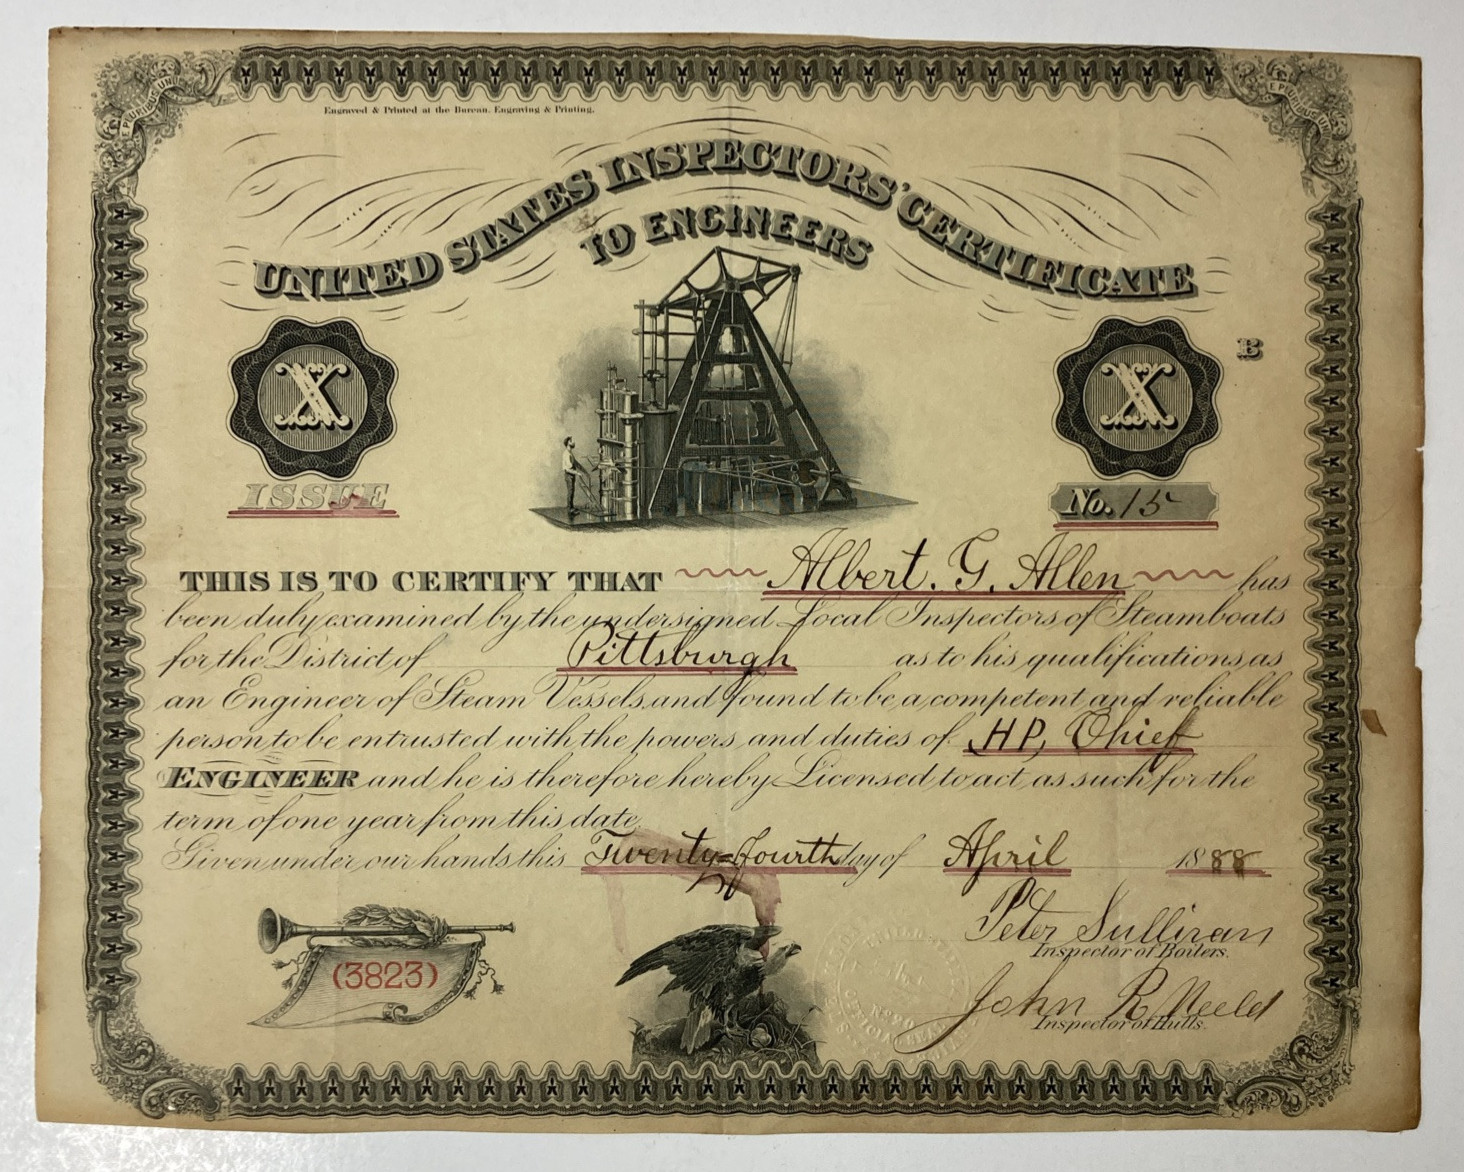 E PLURIBUS UNUM
E PLURIBUS UNUM
Engraved & Printed at the Bureau, Engraving & Printing.
UNITED STATES INSPECTORS' CERTIFICATE
TO ENGINEERS
X
X
B
ISSUE
No. 15
THIS IS TO CERTIFY THAT Albert. G. Allen has
been duly examined by the undersigned Local Inspectors of Steamboats
for the District of Pittsburgh as to his qualifications, as
an Engineer of Steam Vessels, and found to be a competent and reliable
person to be entrusted with the powers and duties of HP, Chief
ENGINEER and he is therefore hereby Licensed to act as such for the
term of one year from this date.
Given under our hands this Twenty=fourth day of April 1888
Peter Sullivan
Inspector of Boilers.
(3823)
John R Neeld
Inspector of Hulls.